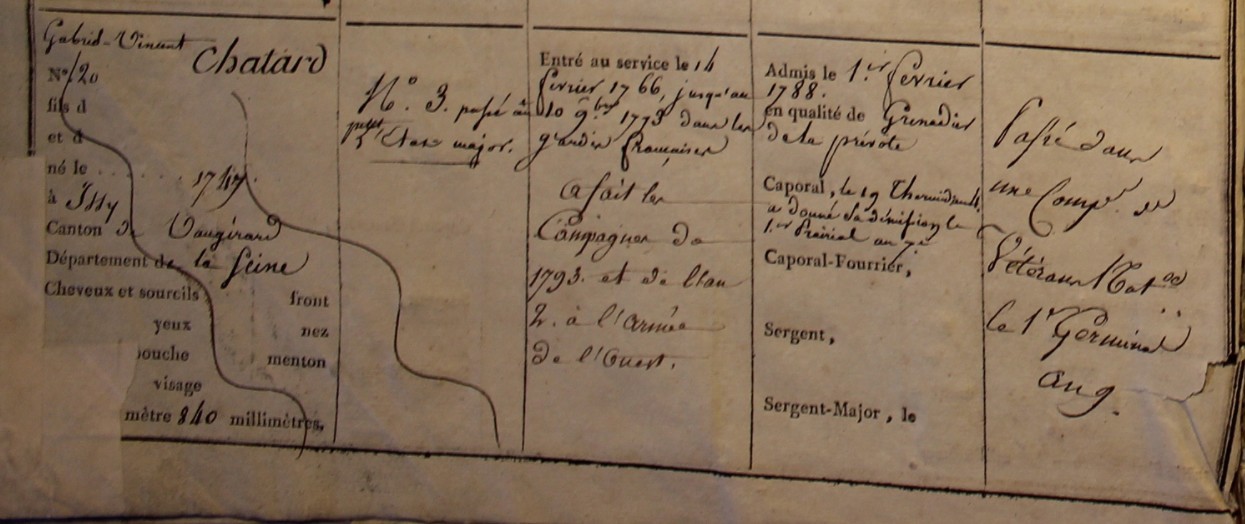 Gabriel-Vincent Chatard
N.º 120
fils d
et d
né le . . . . . . 1747.
à Issy
Canton de Vaugirard
Département de la Seine
Cheveux et sourcils front
yeux nez
bouche menton
visage
mètre 840 millimètres,
N.º 3. passé au
petit Etat major.
Entré au service le 14
fevrier 1766, jusqu'au
10 9.bre 1773 dans les
gardes françaises
a fait les
Campagnes de
1793. et de l'an
2. à l'armée
de l'Ouest.
Admis le 1.er fevrier
1788.
en qualité de Grenadier
de la prévôté
Caporal, le 19 Thermidor
a donné sa démission le
1.er Prairial an 7e
Caporal-Fourrier,
Sergent,
Sergent-Major, le
Passé dans
une Comp.e de
Vétérans Nat.
le 1.er Germinal
an 9.